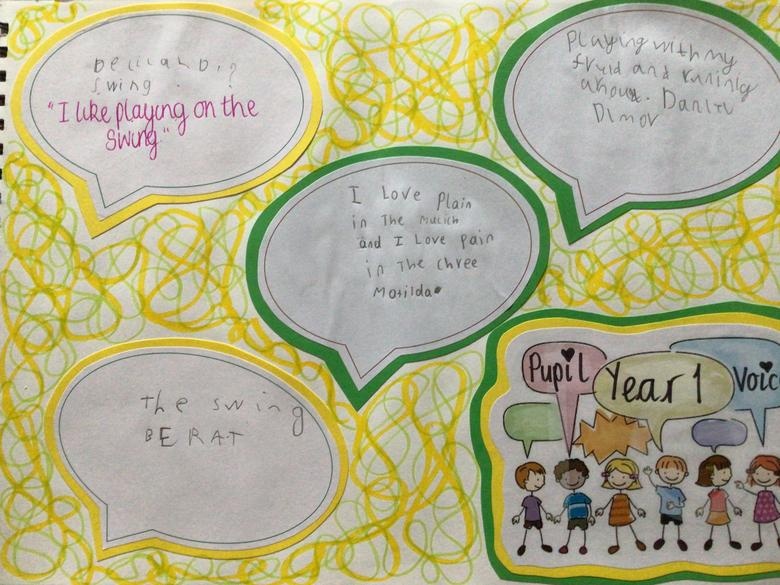 Swing
"I like playing on the
Swing"
Playing with my
and
Dimov
I Love Plain
in The
and I Love pain
in The chree
Matilda
the swing
BERAT
Pupil
Year 1
Voic